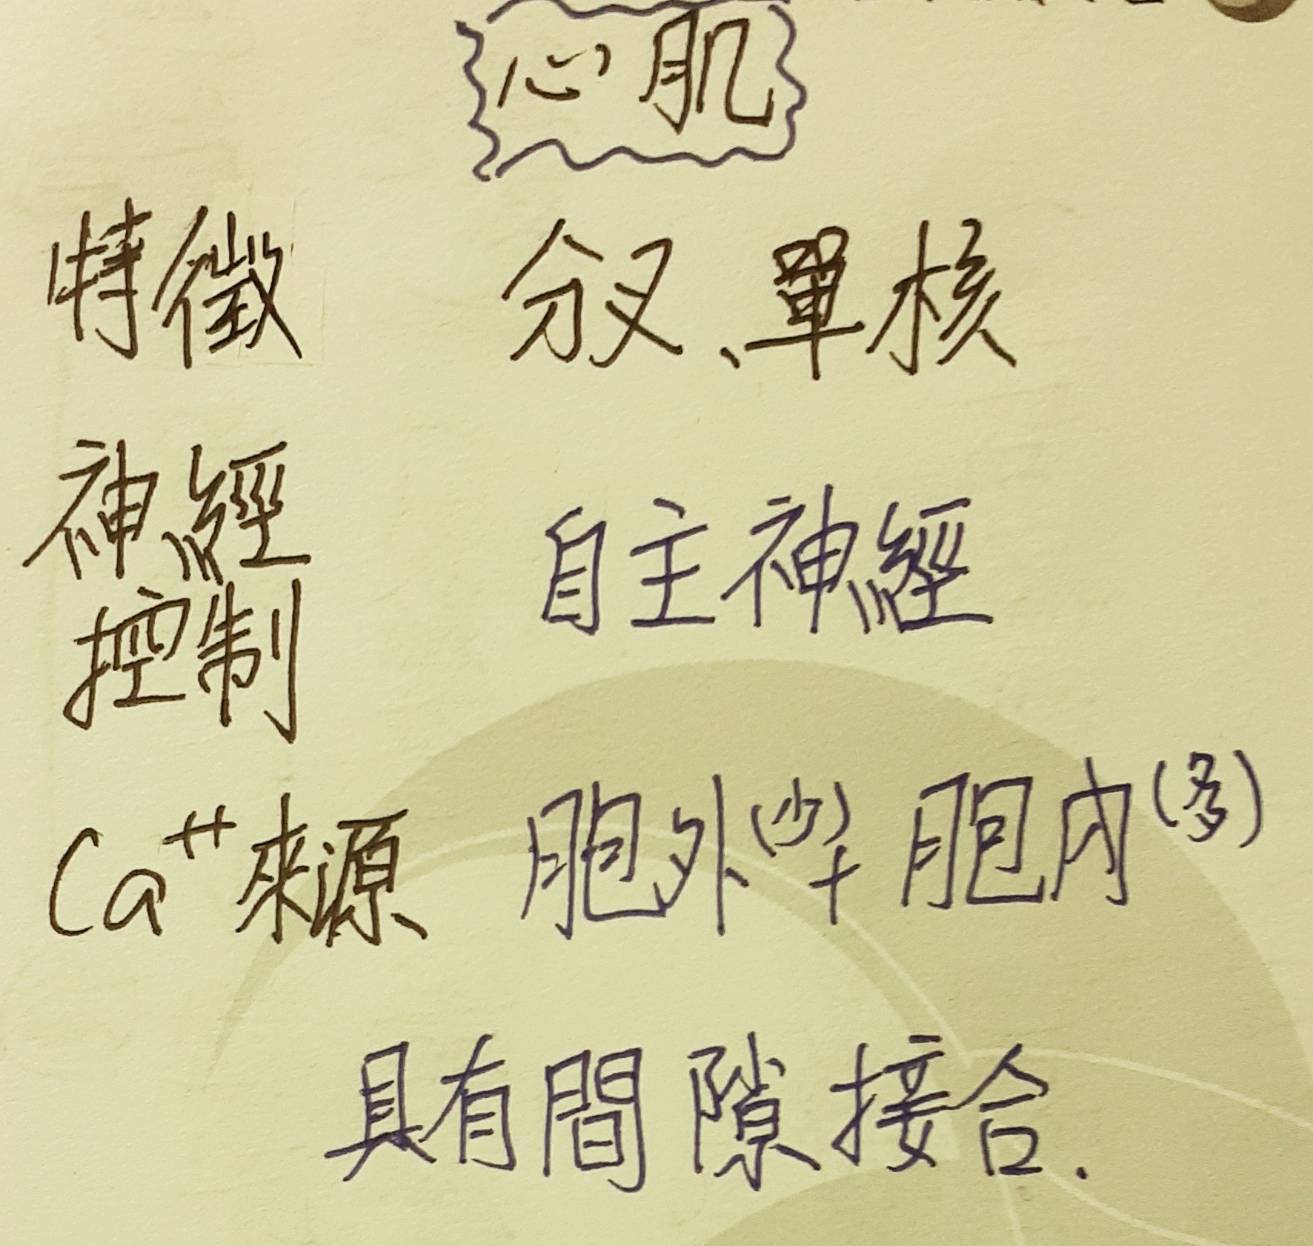 心肌
特徵 分叉、單核
神經
控制 自主神經
Ca⁺⁺來源 胞外(少)+胞內(多)
具有間隙接合.